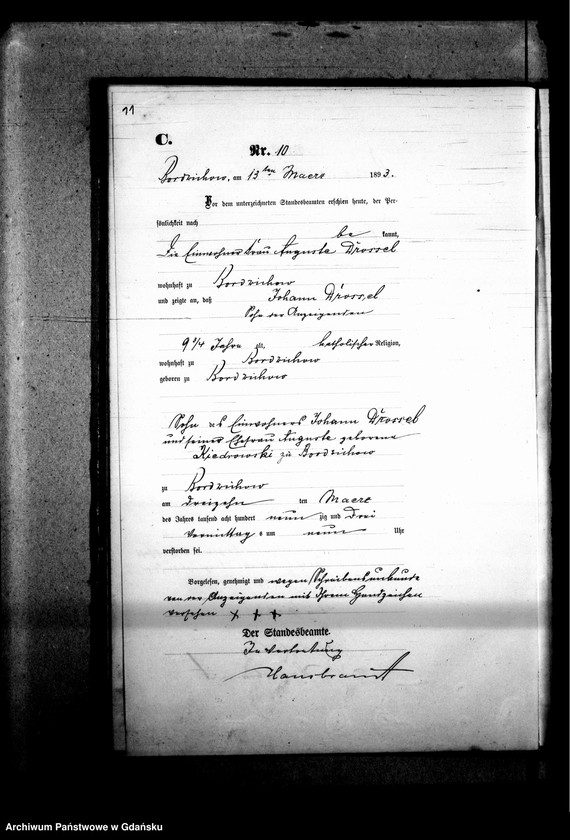 11
C.
Nr. 10
Bordzichow, am 13ten Maerz 1893.
Vor dem unterzeichneten Standesbeamten erschien heute, der Per-
sönlichkeit nach
be kannt,
die Einwohnerfrau Auguste Drossel
wohnhaft zu Bordzichow
und zeigte an, daß Johann Drossel
Sohn der Anzeigenden
9 3/4 Jahre alt, katholischer Religion,
wohnhaft zu Bordzichow
geboren zu Bordzichow
Sohn des Einwohners Johann Drossel
und seiner Ehefrau Auguste geborene
Kiedrowski zu Bordzichow
zu Bordzichow
am dreizehn ten Maerz
des Jahres tausend acht hundert neun zig und Drei
Vormittag s um neun Uhr
verstorben sei.
Vorgelesen, genehmigt und wegen Schreibensunkunde
von der Anzeigenden mit Ihrem Handzeichen
versehen + + +
Der Standesbeamte.
In Vertretung
Archiwum Państwowe w Gdańsku